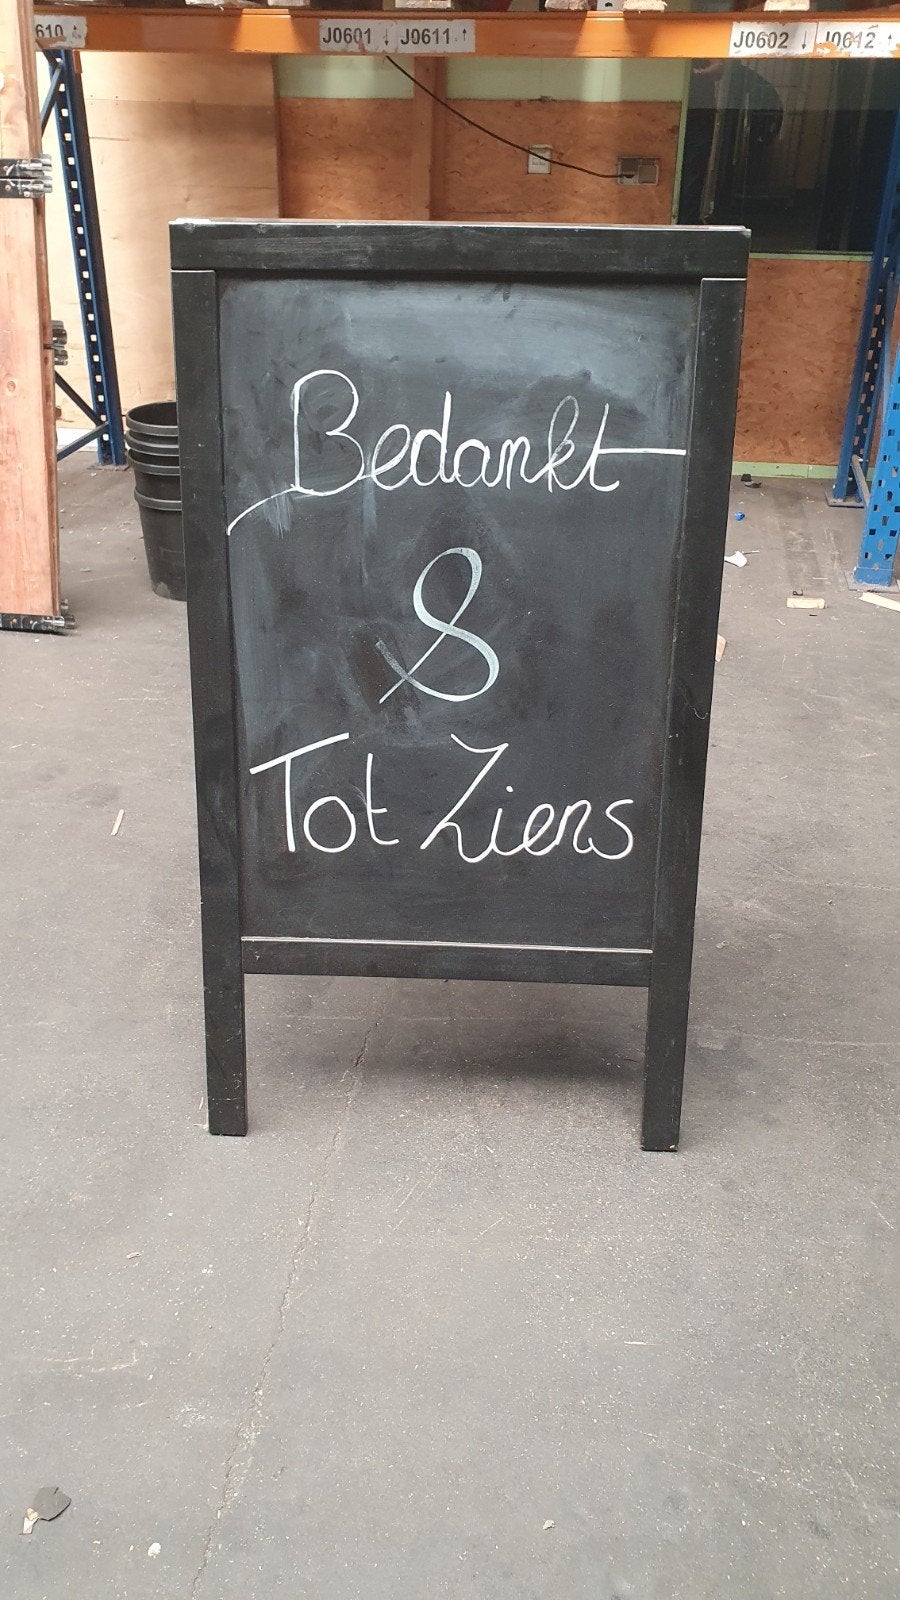 610 ↑
J0601 ↓ J0611 ↑
J0602 ↓ J0612 ↑
Bedankt
&
Tot Ziens